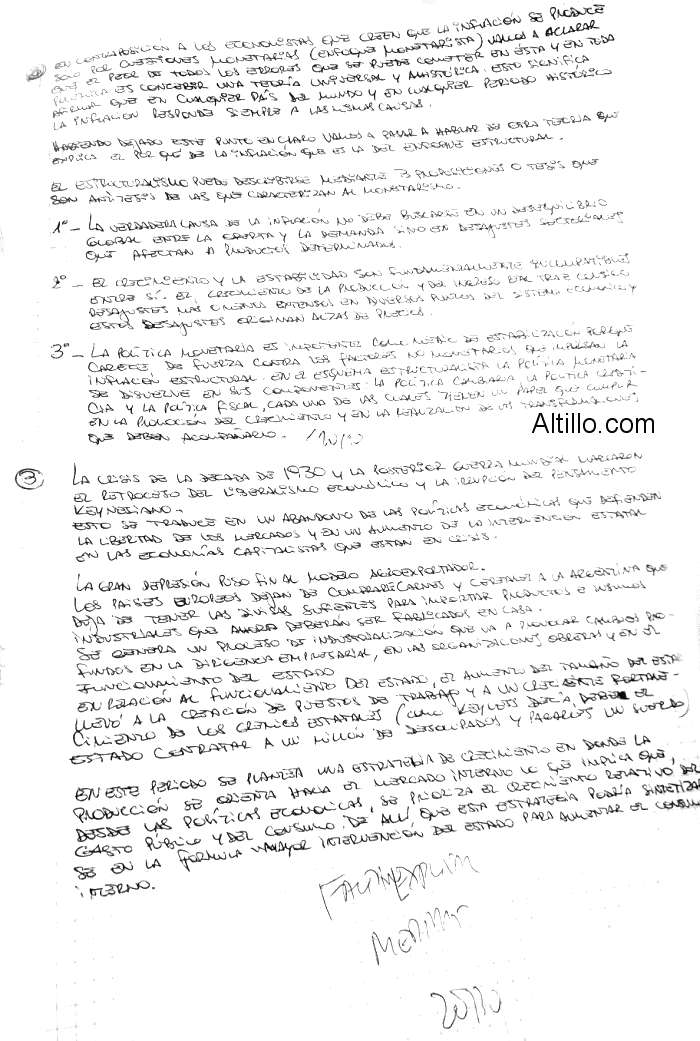 EN CONTRAPOSICIÓN A LOS ECONOMISTAS QUE CREEN QUE LA INFLACIÓN SE PRODUCE
SOLO POR CUESTIONES MONETARIAS (ENFOQUE MONETARISTA) VAMOS A ACLARAR
QUE EL PEOR DE TODOS LOS ERRORES QUE SE PUEDE COMETER EN ÉSTA Y EN TODA
POLÍTICA ES CONCEBIR UNA TEORÍA UNIVERSAL Y AHISTÓRICA. ESTO SIGNIFICA
AFIRMAR QUE EN CUALQUIER PAÍS DEL MUNDO Y EN CUALQUIER PERIODO HISTÓRICO
LA INFLACION RESPONDE SIEMPRE A LAS MISMAS CAUSAS.
HABIENDO DEJADO ESTE PUNTO EN CLARO VAMOS A PASAR A HABLAR DE OTRA TEORÍA QUE
EXPLICA EL POR QUÉ DE LA INFLACIÓN QUE ES LA DEL ENFOQUE ESTRUCTURAL.
EL ESTRUCTURALISMO PUEDE DESCRIBIRSE MEDIANTE 3 PROPOSICIONES O TESIS QUE
SON ANTITESIS DE LAS QUE CARACTERIZAN AL MONETARISMO.
1º - LA VERDADERA CAUSA DE LA INFLACIÓN NO DEBE BUSCARSE EN UN DESEQUILIBRIO
GLOBAL ENTRE LA OFERTA Y LA DEMANDA SINO EN DESAJUSTES SECTORIALES
QUE AFECTAN A PRODUCTOS DETERMINADOS.
2º - EL CRECIMIENTO Y LA ESTABILIDAD SON FUNDAMENTALMENTE INCOMPATIBLES
ENTRE SÍ. EL CRECIMIENTO DE LA PRODUCCION Y DEL INGRESO REAL TRAE CONSIGO
DESAJUSTES MAS O MENOS EXTENSOS EN DIVERSOS PUNTOS DEL SISTEMA ECONOMICO Y
ESTOS DESAJUSTES ORIGINAN ALZAS DE PRECIOS.
3º - LA POLÍTICA MONETARIA ES IMPOTENTE COMO METODO DE ESTABILIZACIÓN PORQUE
CARECE DE FUERZA CONTRA LOS FACTORES NO MONETARIOS QUE IMPULSAN LA
INFLACIÓN ESTRUCTURAL. EN EL ESQUEMA ESTRUCTURALISTA LA POLÍTICA MONETARIA
SE DISUELVE EN SUS COMPONENTES: LA POLÍTICA CAMBIARIA, LA POLITICA CREDITI-
CIA Y LA POLÍTICA FISCAL, CADA UNA DE LAS CUALES TIENEN UN PAPEL QUE CUMPLIR
EN LA PROMOCIÓN DEL CRECIMIENTO Y EN LA REALIZACIÓN DE LAS TRANSFORMACIONES
QUE DEBEN ACOMPAÑARLO.
Altillo.com
3 LA CRISIS DE LA DECADA DE 1930 Y LA POSTERIOR GUERRA MUNDIAL MARCARON
EL RETROCESO DEL LIBERALISMO ECONÓMICO Y LA IRRUPCIÓN DEL PENSAMIENTO
KEYNESIANO.
ESTO SE TRADUCE EN UN ABANDONO DE LAS POLÍTICAS ECONÓMICAS QUE DEFIENDEN
LA LIBERTAD DE LOS MERCADOS Y EN UN AUMENTO DE LA INTERVENCION ESTATAL
EN LAS ECONOMÍAS CAPITALISTAS QUE ESTAN EN CRISIS.
LA GRAN DEPRESIÓN PUSO FIN AL MODELO AGROEXPORTADOR.
LOS PAISES EUROPEOS DEJAN DE COMPRAR CARNES Y CEREALES A LA ARGENTINA QUE
DEJA DE TENER LAS DIVISAS SUFIENTES PARA IMPORTAR PRODUCTOS E INSUMOS
INDUSTRIALES QUE AHORA DEBERÁN SER FABRICADOS EN CASA.
SE GENERA UN PROCESO DE INDUSTRIALIZACIÓN QUE VA A PROVOCAR CAMBIOS PRO-
FUNDOS EN LA DIRIGENCIA EMPRESARIAL, EN LAS ORGANIZACIONES OBRERAS Y EN EL
FUNCIONAMIENTO DEL ESTADO.
EN RELACIÓN AL FUNCIONAMIENTO DEL ESTADO, EL AUMENTO DEL TAMAÑO DEL ESTADO
LLEVÓ A LA CREACIÓN DE PUESTOS DE TRABAJO Y A UN CRECIENTE FORTALE-
CIMIENTO DE LOS ESTATALES (COMO KEYNES DECÍA, DEBE EL
ESTADO CONTRATAR A UN MILLÓN DE DESOCUPADOS Y PAGARLES UN SUELDO)
EN ESTE PERIODO SE PLANTEA UNA ESTRATEGIA DE CRECIMIENTO EN DONDE LA
PRODUCCIÓN SE ORIENTA HACIA EL MERCADO INTERNO LO QUE IMPLICA QUE,
DESDE LAS POLÍTICAS ECONOMICAS, SE PRIORIZA EL CRECIMIENTO RELATIVO DEL
GASTO PÚBLICO Y DEL CONSUMO. DE ALLÍ QUE ESTA ESTRATEGIA PODRÍA SINTETIZAR-
SE EN LA FORMULA MAYOR INTERVENCIÓN DEL ESTADO PARA AUMENTAR EL CONSUMO
INTERNO.